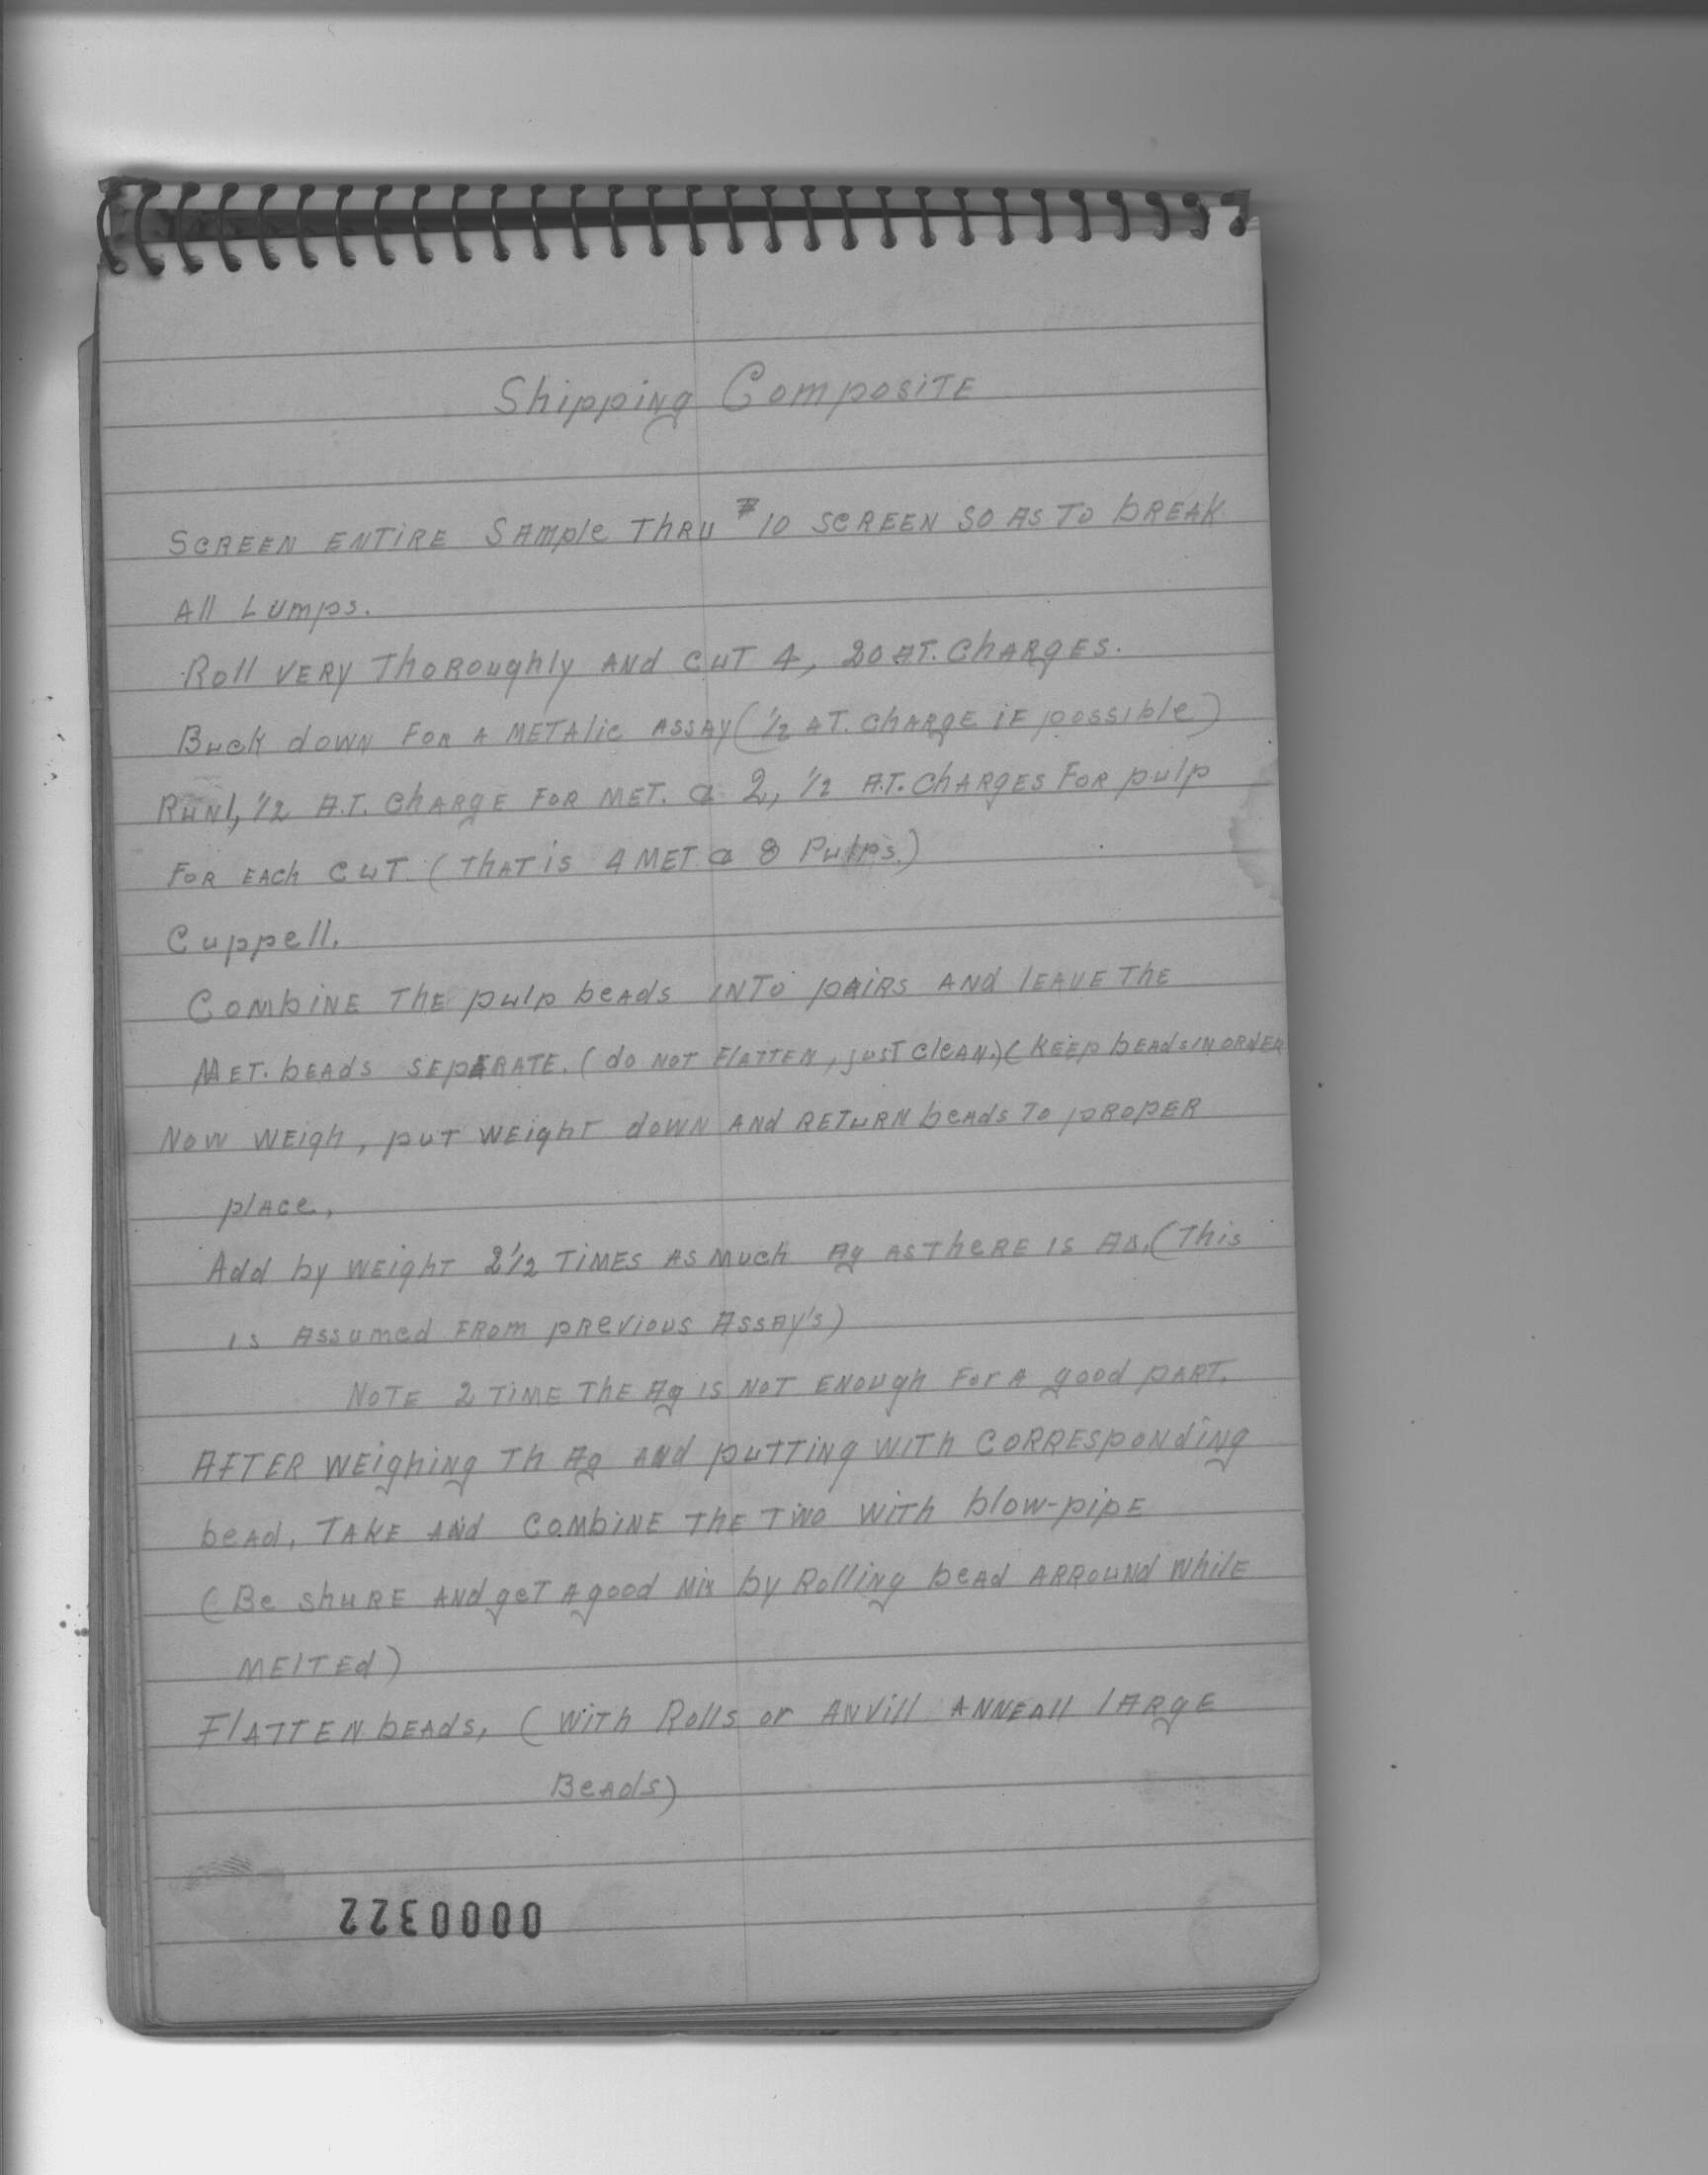 Shipping Composite
Screen entire sample thru #10 screen so as to break
all lumps.
Roll very thoroughly and cut 4, 20 A.T. charges.
Buck down for a metalic assay (1/2 A.T. charge if possible)
Run 1, 1/2 A.T. charge for met. & 2, 1/2 A.T. charges for pulp
for each cut. (That is 4 met & 8 pulps.)
Cuppell.
Combine the pulp beads into pairs and leave the
met. beads seperate. (do not flatten, just clean.) (Keep beads in order
Now weigh, put weight down and return beads to proper
place.
Add by weight 2 1/2 times as much Ag as there is Au. (This
is assumed from previous assay's)
Note 2 time the Ag is not enough for a good part.
After weighing th Ag and putting with corresponding
bead, take and combine the two with blow-pipe
(Be shure and get a good mix by rolling bead arround while
melted)
Flatten beads, (with rolls or anvill anneall large
Beads)
0000322